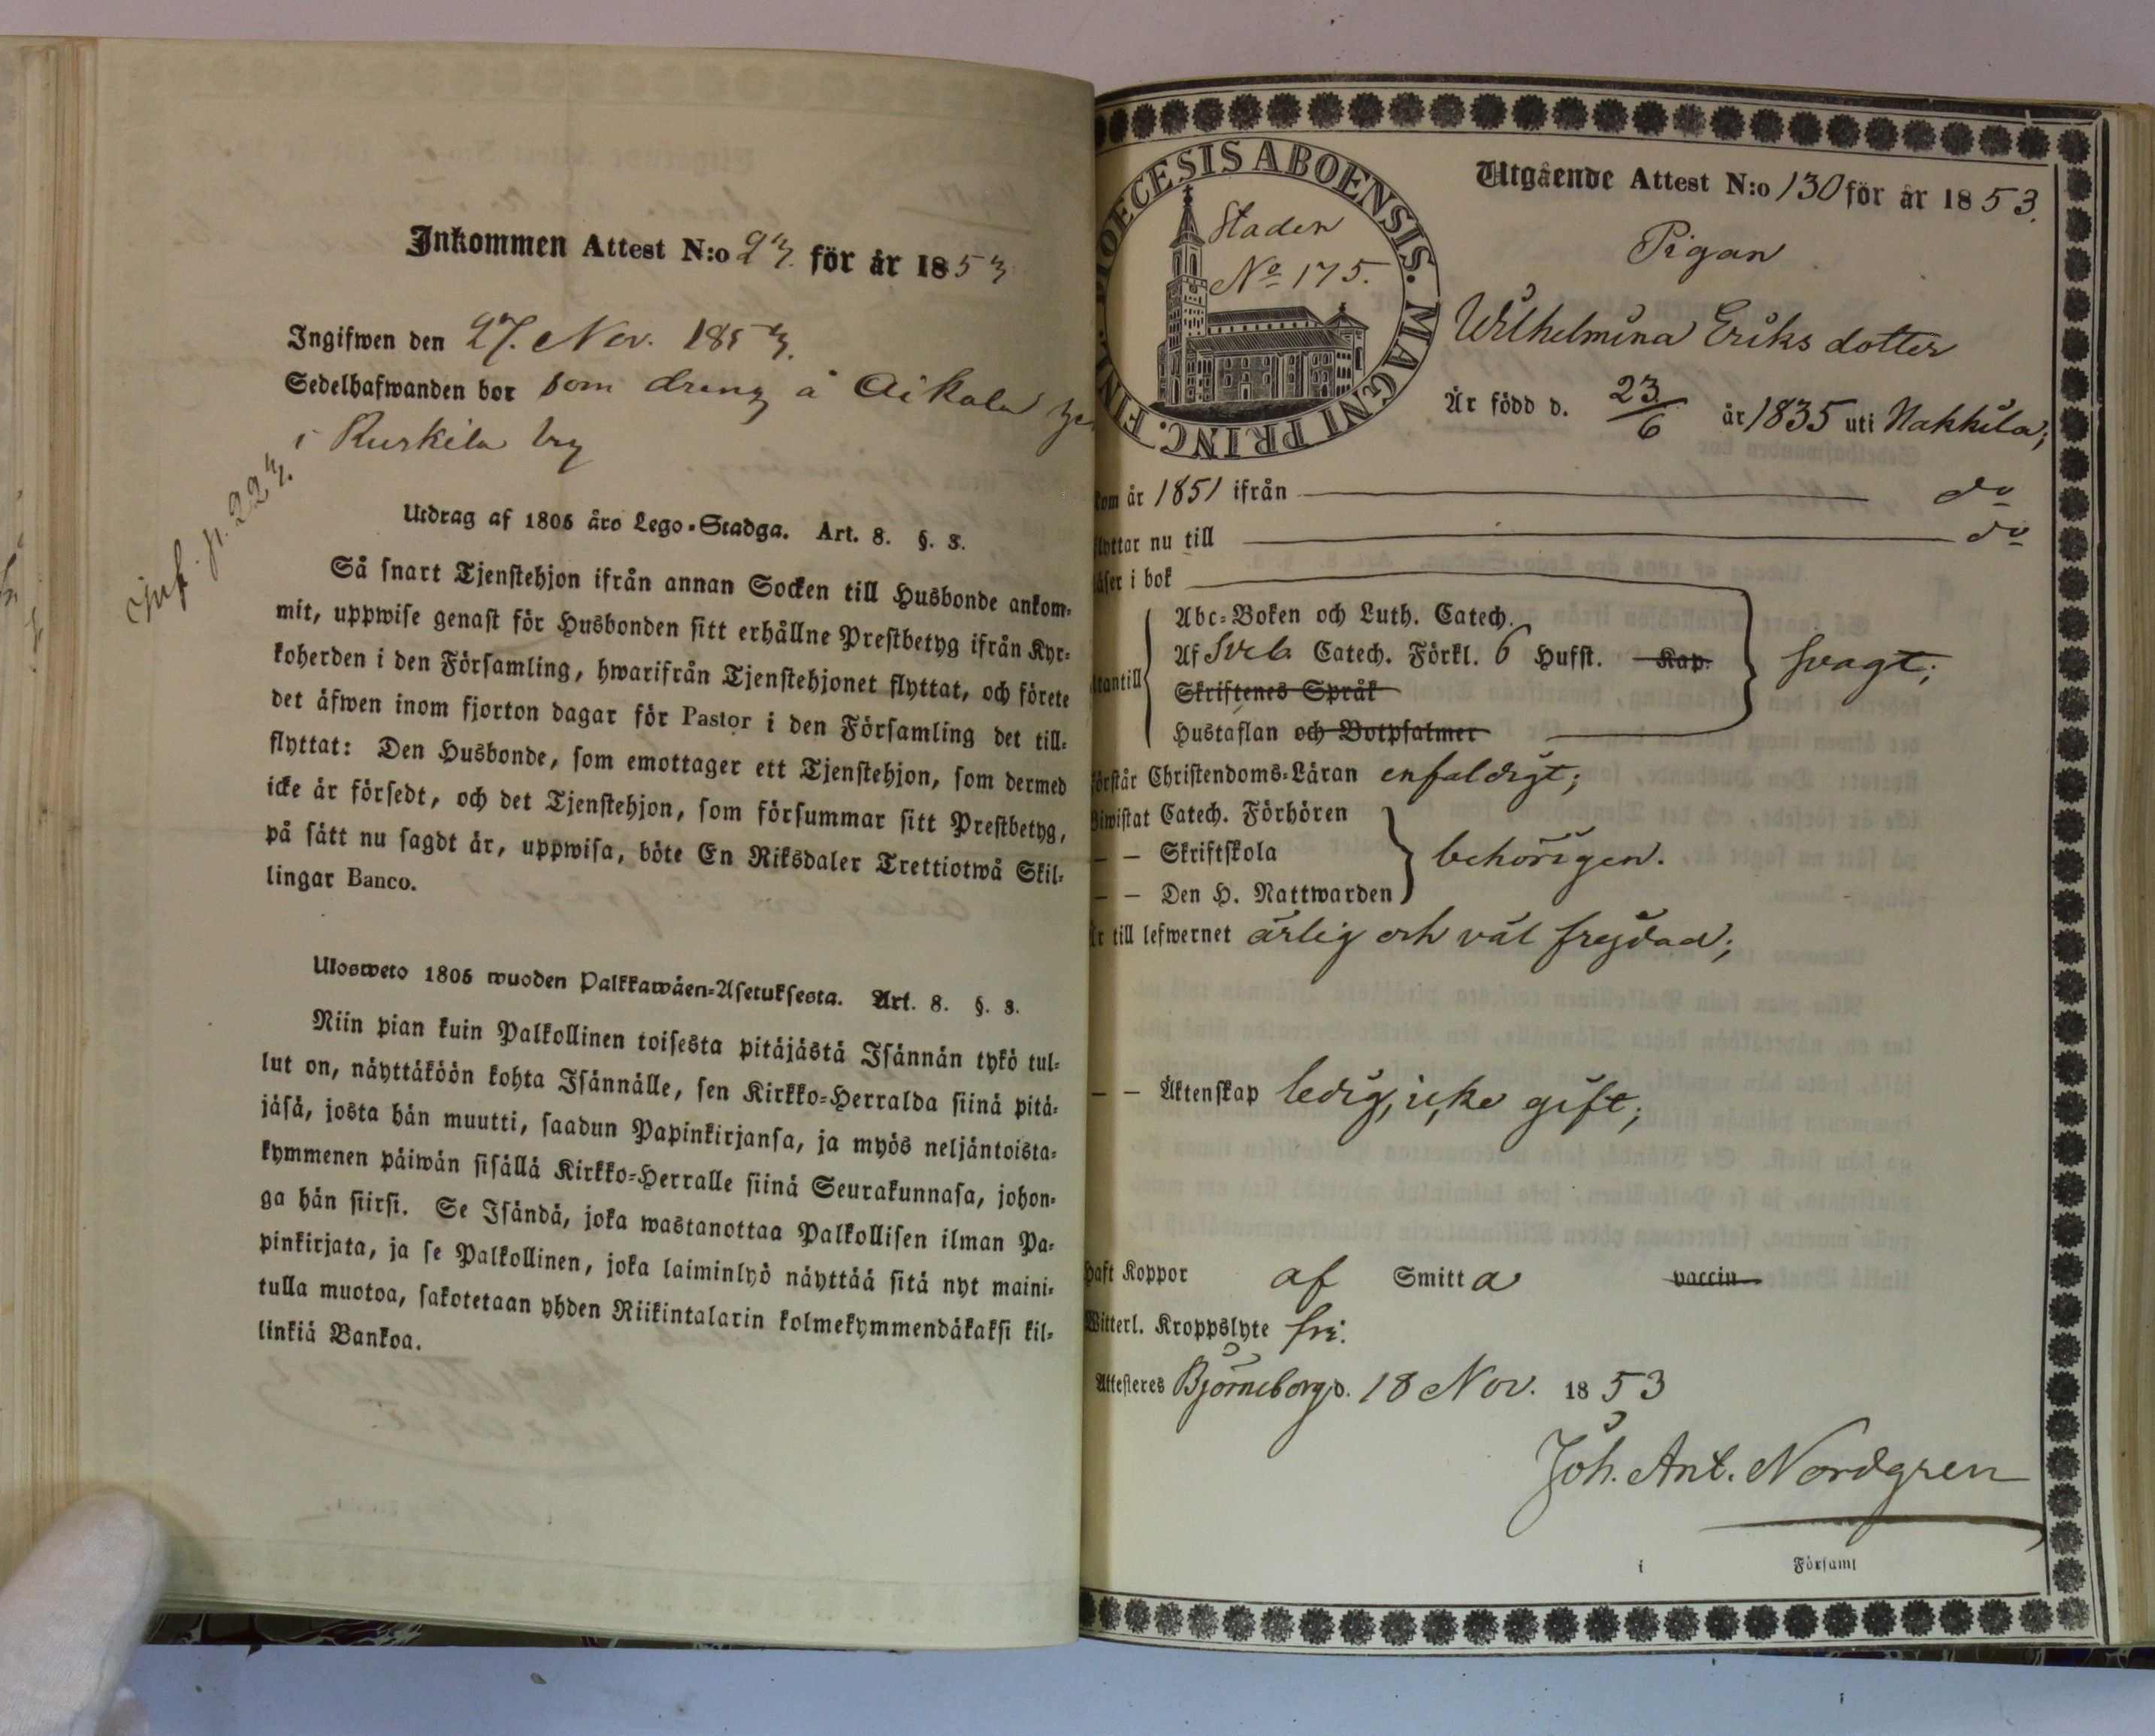 Inkommen Attest N:o 93. för år 1853
Ingifwen den 27. Nov. 1853.
Sedelhafwanden bor som dreng å Aikala
i Ruskila by
jmf. p. 223.
Utdrag af 1805 åro Lego-Stadga. Art. 8. §. 3.
Så snart Tjenstehjon ifrån annan Socken till Husbonde ankom-
mit, uppwise genast för Husbonden sitt erhållne Prestbetyg ifrån Kyr-
koherden i den Församling, hwarifrån Tjenstehjonet flyttat, och förete
det äfwen inom fjorton dagar för Pastor i den Församling det till-
flyttat: Den Husbonde, som emottager ett Tjenstehjon, som dermed
icke är försedt, och det Tjenstehjon, som försummar sitt Prestbetyg,
på sätt nu sagdt är, uppwisa, böte En Riksdaler Trettiotwå Skil-
lingar Banco.
Ulosweto 1805 wuoden Palkkawäen-Asetuksesta. Art. 8. §. 3.
Niin pian kuin Palkollinen toisesta pitäjästä Isännän tykö tul-
lut on, näyttäköön kohta Isännälle, sen Kirkko-Herralda siinä pitä-
jäsä, josta hän muutti, saadun Papinkirjansa, ja myös neljäntoista-
kymmenen päiwän sisällä Kirkko-Herralle siinä Seurakunnasa, johon-
ga hän siirsi. Se Isändä, joka wastanottaa Palkollisen ilman Pa-
pinkirjata, ja se Palkollinen, joka laiminlyö näyttää sitä nyt maini-
tulla muotoa, sakotetaan yhden Riikintalarin kolmekymmendäkaksi kil-
linkiä Bankoa.
DIOECESIS ABOENSIS. MAGNI PRINC. FINL.
Staden
No 175.
Utgående Attest N:o 130 för år 1853.
Pigan
Wilhelmina Eriksdotter
Är född d. 23/6 år 1835 uti Nakkila;
kom år 1851 ifrån do
flyttar nu till do
läser i bok
utantill
Abc-Boken och Luth. Catech.
Af Sveb. Catech. Förkl. 6 Hufst. Kap.
Skriftenes Språk
Hustaflan och Botpsalmer
svagt;
förstår Christendoms-Läran enfaldigt;
Biwistat Catech. Förhören
— — Skriftskola
— — Den H. Nattwarden
behörigen.
Är till lefwernet ärlig och väl frejdad;
— — Äktenskap ledig, icke gift;
Haft Koppor af Smitta vaccin
Witterl. Kroppslyte fri.
Attesteres Björneborg d. 18 Nov. 1853
Joh. Ant. Nordgren
i Församl